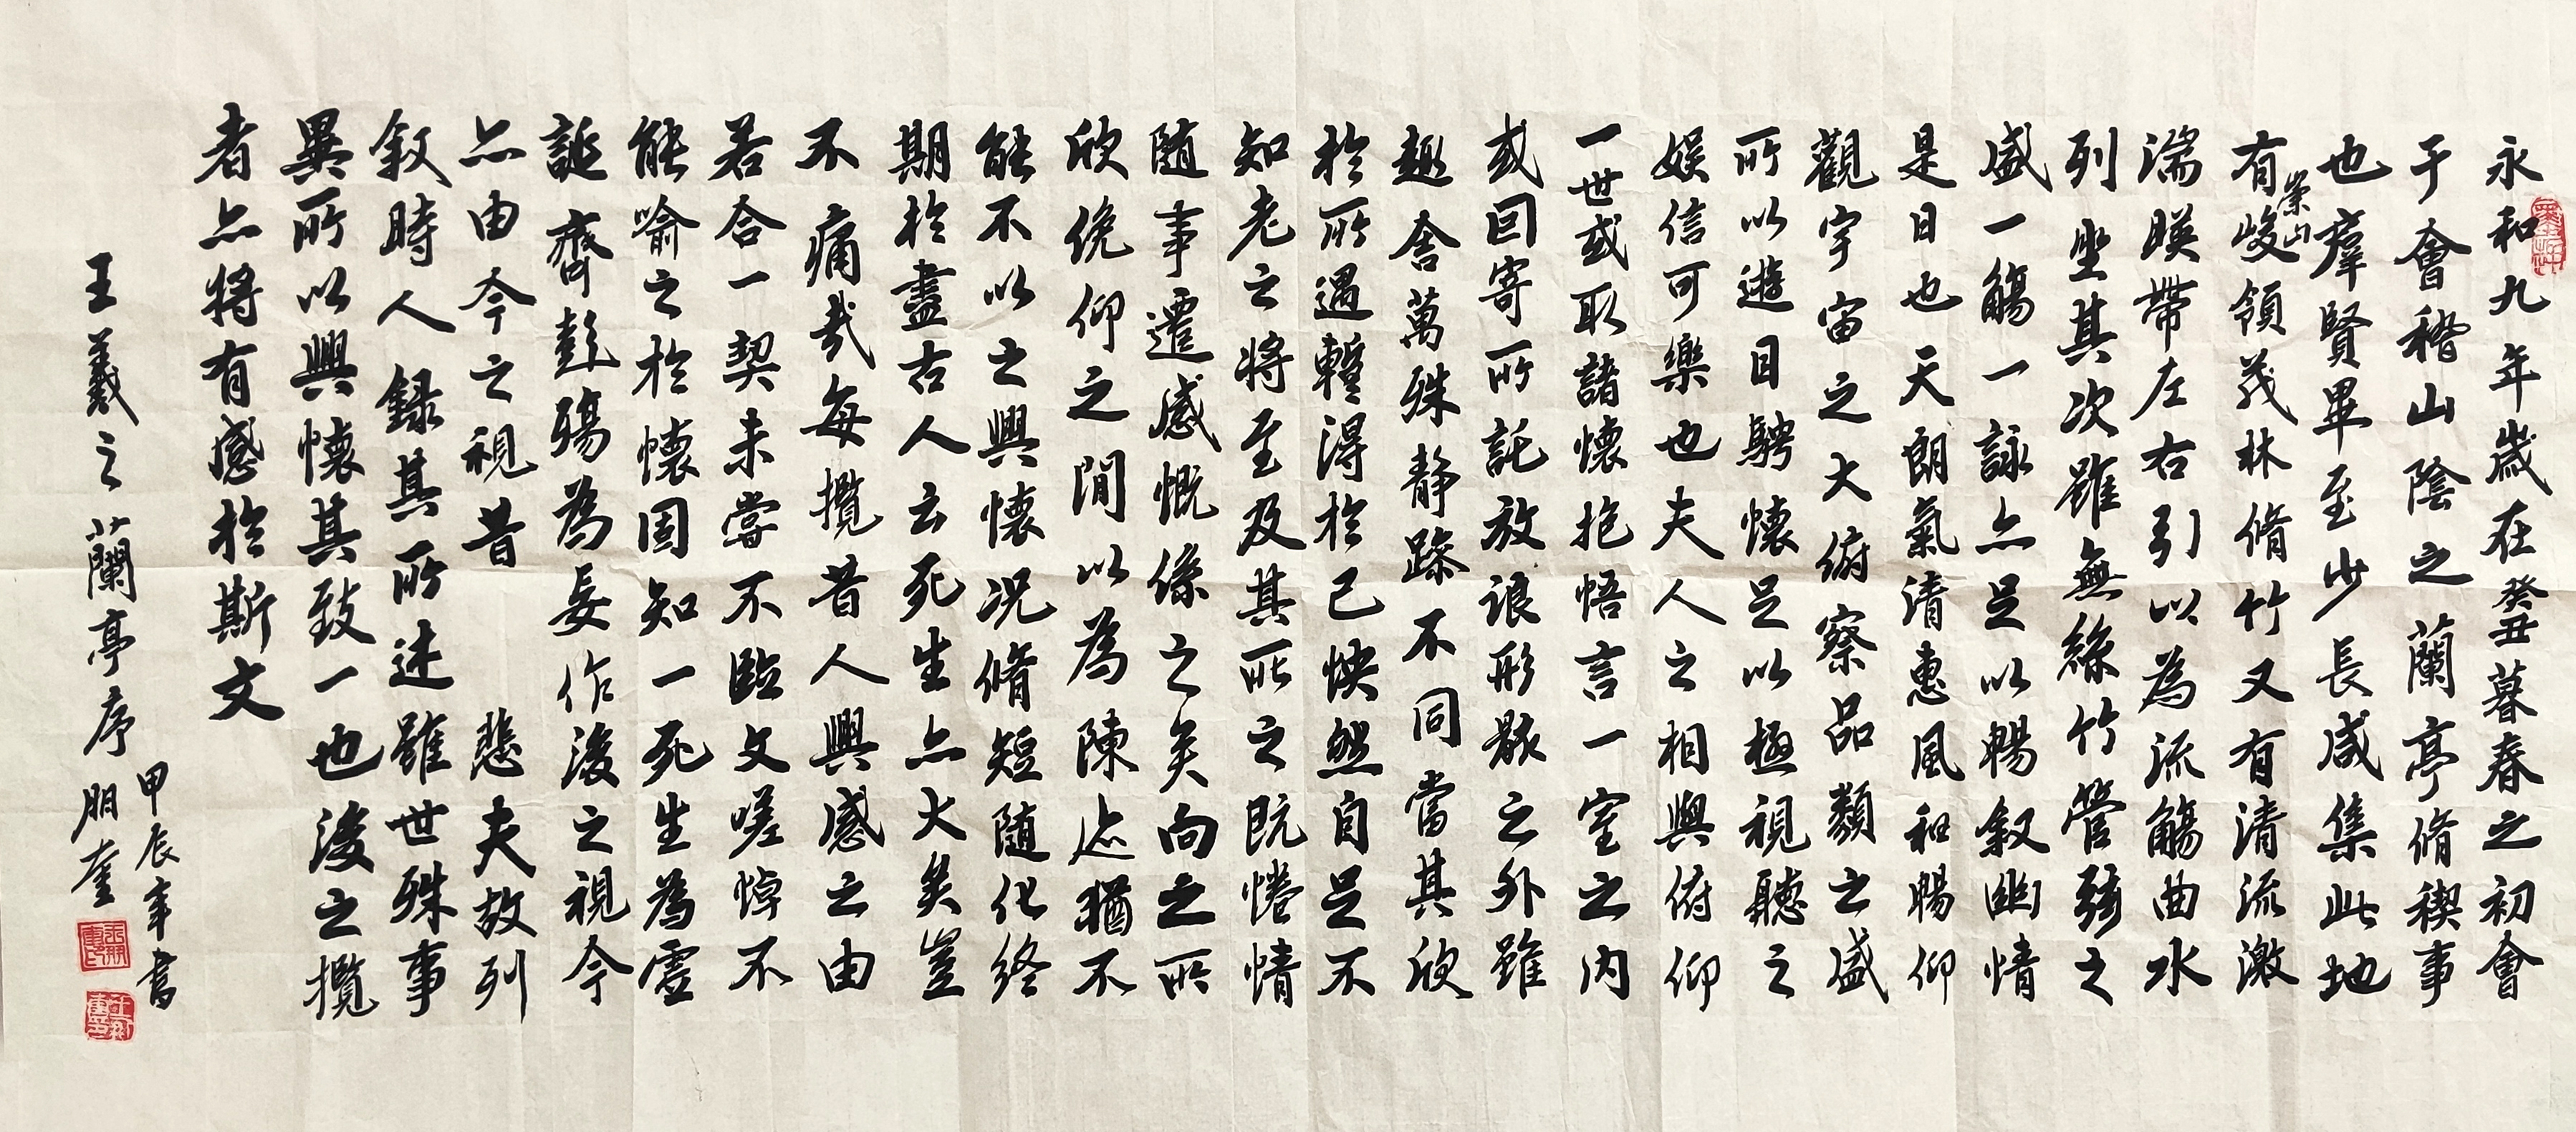 永和九年歲在癸丑暮春之初會
于會稽山陰之蘭亭脩禊事
也羣賢畢至少長咸集此地
有崇山峻領茂林脩竹又有清流激
湍暎帶左右引以為流觴曲水
列坐其次雖無絲竹管弦之
盛一觴一詠亦足以暢敘幽情
是日也天朗氣清惠風和暢仰
觀宇宙之大俯察品類之盛
所以遊目騁懷足以極視聽之
娛信可樂也夫人之相與俯仰
一世或取諸懷抱悟言一室之內
或因寄所託放浪形骸之外雖
趣舍萬殊靜躁不同當其欣
於所遇暫得於己怏然自足不
知老之將至及其所之既惓情
隨事遷感慨係之矣向之所
欣俛仰之間以為陳迹猶不
能不以之興懷況脩短隨化終
期於盡古人云死生亦大矣豈
不痛哉每攬昔人興感之由
若合一契未嘗不臨文嗟悼不
能喻之於懷固知一死生為虛
誕齊彭殤為妄作後之視今
亦由今之視昔 悲夫故列
敘時人錄其所述雖世殊事
異所以興懷其致一也後之攬
者亦將有感於斯文
甲辰年書
王羲之蘭亭序 朋奎